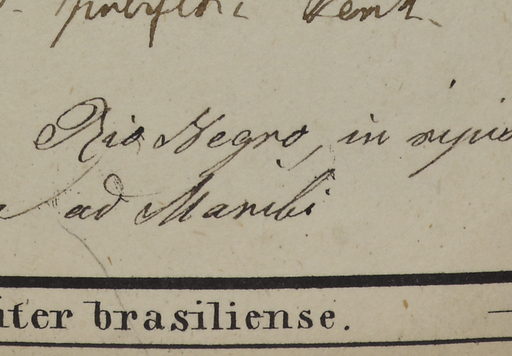 Rio Negro, in ripis
ad Maribi
iter brasiliense.